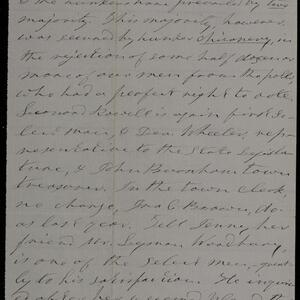 & the hunkers have prevailed by two
majority. This majority, however,
was secured by hunker chicanery, in
the rejection of some half dozen or
more of our men from the polls,
who had a perfect right to vote.
Leonard Rowell is again first se-
lect man, & Dea. Wheeler, repre-
sentative to the State Legisla-
ture, & John Burnham town
treasurer. In the town clerk
no change, Ira G. Brown, do.
as last year. Tell Jenny, her
friend Mr. Lyman Woodbury
is one of the select men, great-
ly to his satisfaction. He